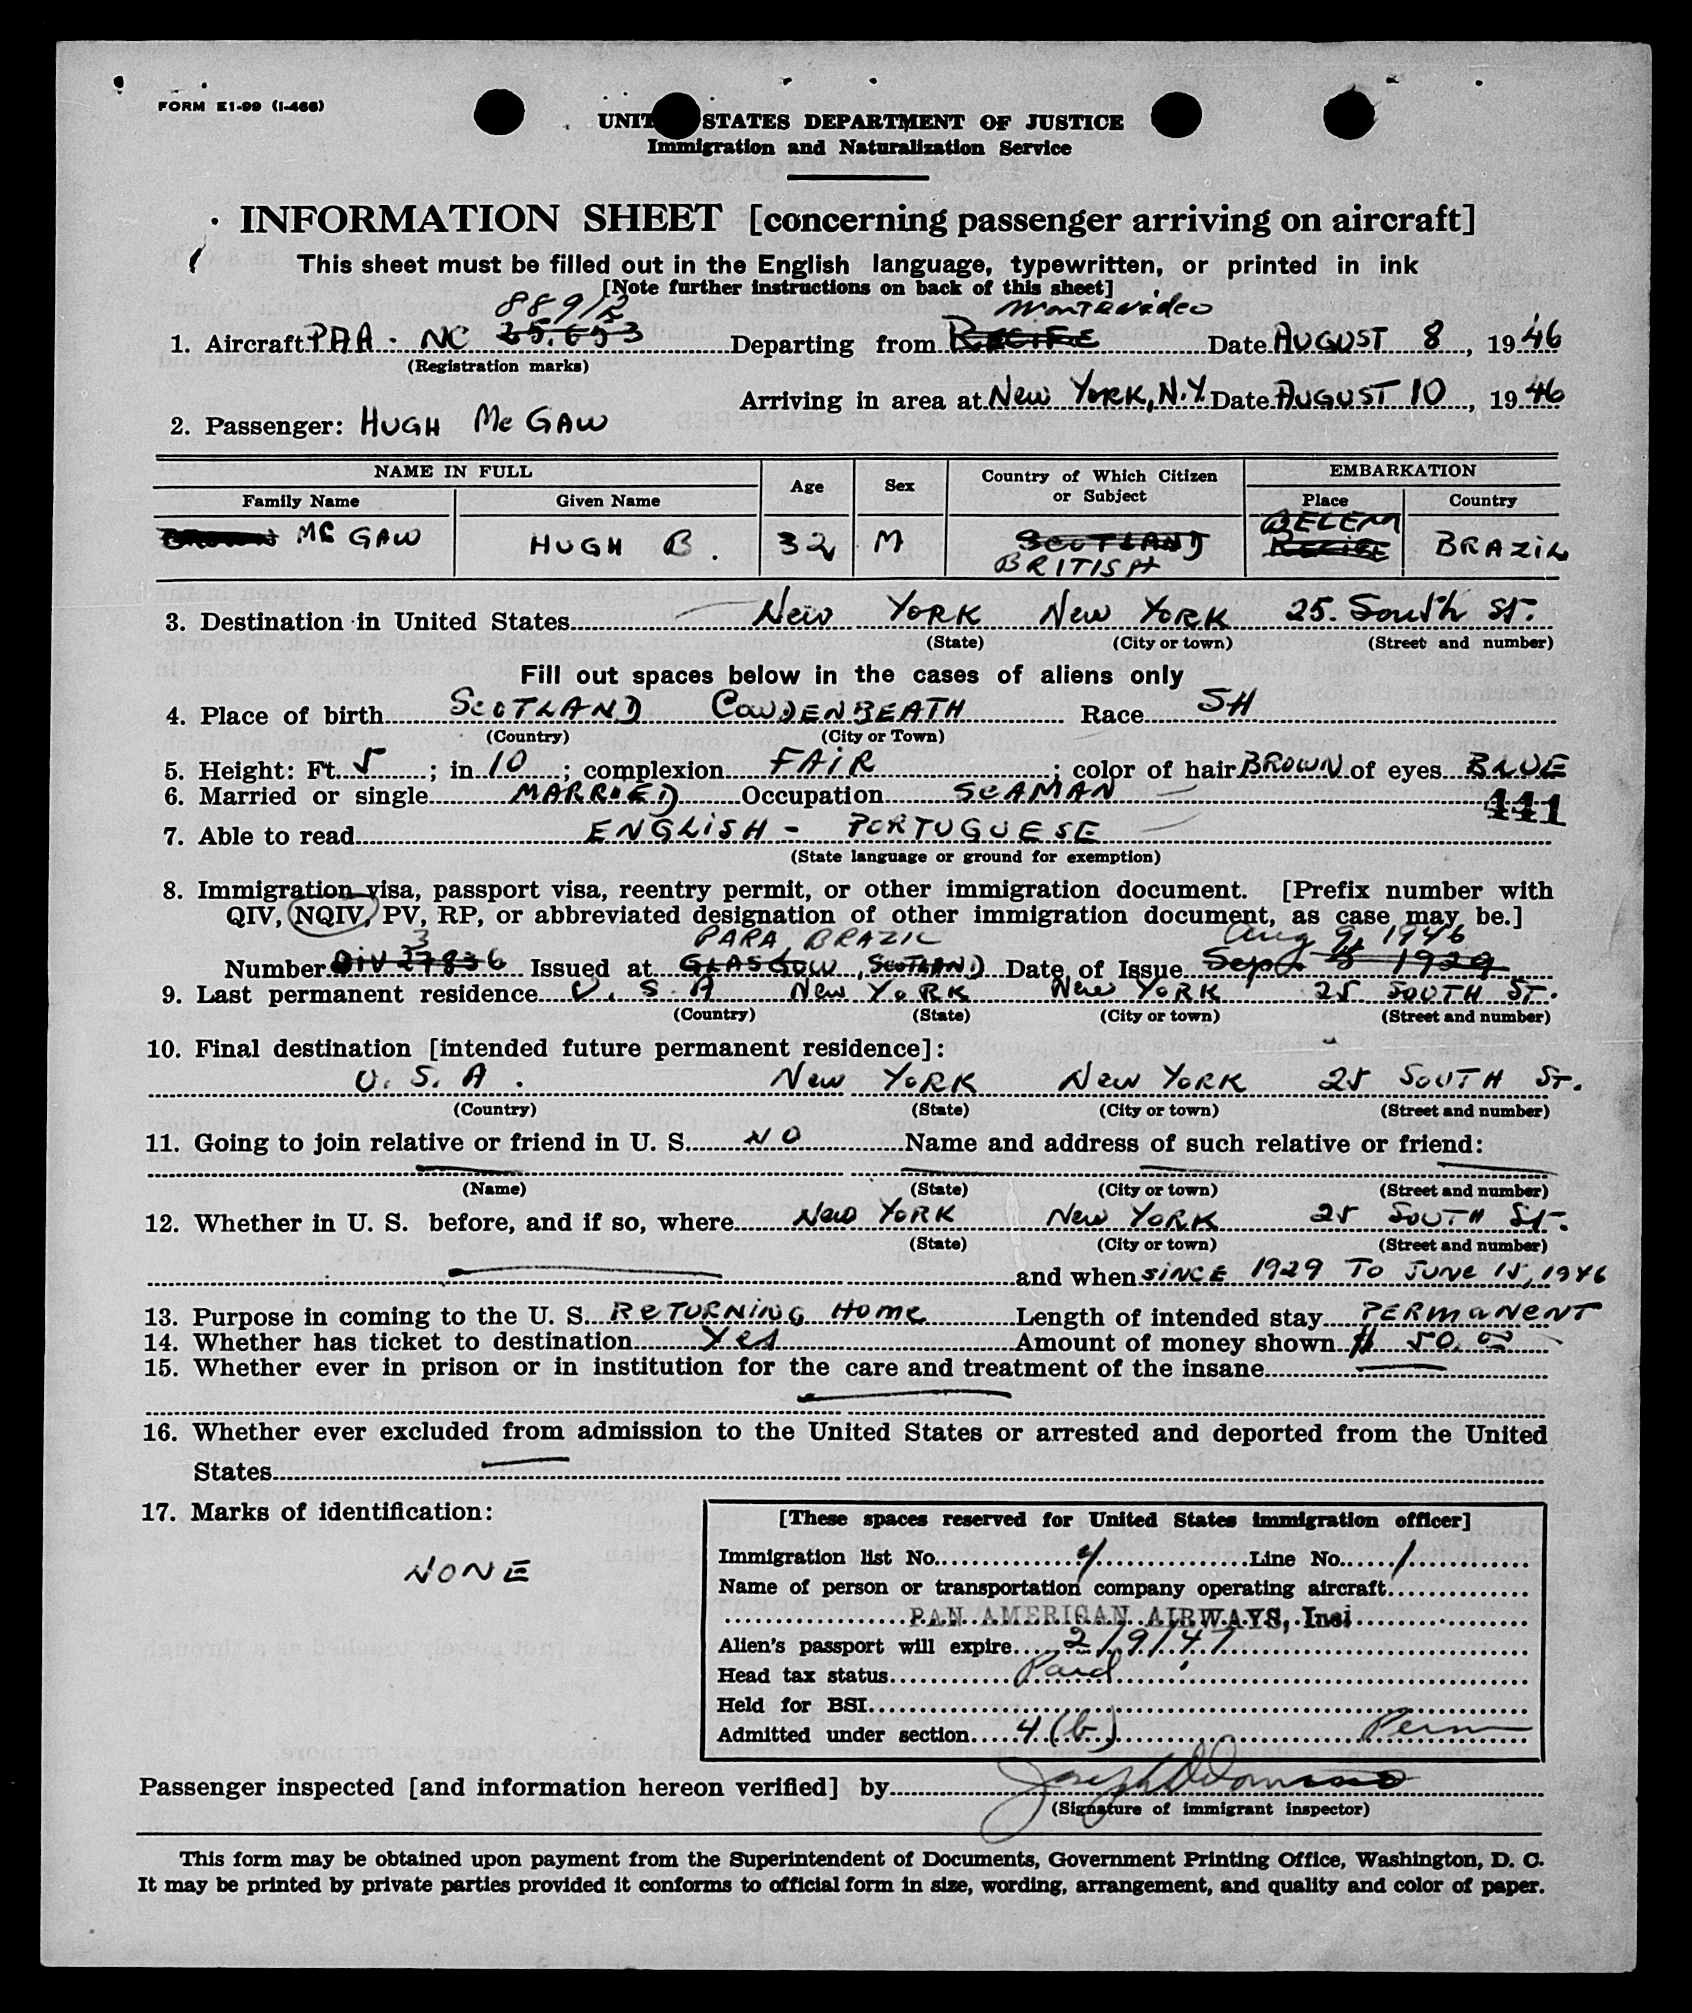 FORM E1-99 (I-466)
UNITED STATES DEPARTMENT OF JUSTICE
Immigration and Naturalization Service
INFORMATION SHEET [concerning passenger arriving on aircraft]
This sheet must be filled out in the English language, typewritten, or printed in ink
[Note further instructions on back of this sheet]
88912 Montevideo
1. Aircraft PAA - NC 25.653 Departing from RECIFE Date AUGUST 8, 1946
(Registration marks)
Arriving in area at New YORK, N.Y. Date AUGUST 10, 1946
2. Passenger: HUGH Mc GAW
NAME IN FULL Age Sex Country of Which Citizen or Subject EMBARKATION
Family Name Given Name Place Country
BELEM
BROWN Mc GAW HUGH B. 32 M SCOTLAND RECIFE BRAZIL
BRITISH
3. Destination in United States New YORK New YORK 25. South St.
(State) (City or town) (Street and number)
Fill out spaces below in the cases of aliens only
4. Place of birth SCOTLAND COWDENBEATH Race SH
(Country) (City or Town)
5. Height: Ft. 5; in 10; complexion FAIR; color of hair BROWN of eyes BLUE
6. Married or single MARRIED Occupation SEAMAN
441
7. Able to read ENGLISH - PORTUGUESE
(State language or ground for exemption)
8. Immigration visa, passport visa, reentry permit, or other immigration document. [Prefix number with
QIV, NQIV, PV, RP, or abbreviated designation of other immigration document, as case may be.]
3 PARA, BRAZIL Aug 9, 1946
Number QIV 27836 Issued at GLASGOW, SCOTLAND Date of Issue Sept 5 1929
9. Last permanent residence U.S.A New YORK New YORK 25 SOUTH ST.
(Country) (State) (City or town) (Street and number)
10. Final destination [intended future permanent residence]:
U.S.A. New YORK New YORK 25 SOUTH ST.
(Country) (State) (City or town) (Street and number)
11. Going to join relative or friend in U. S. NO Name and address of such relative or friend:
(Name) (State) (City or town) (Street and number)
12. Whether in U. S. before, and if so, where New YORK New YORK 25 SOUTH ST.
(State) (City or town) (Street and number)
and when SINCE 1929 TO JUNE 15, 1946
13. Purpose in coming to the U. S. ReTURNING Home Length of intended stay PERMANENT
14. Whether has ticket to destination Yes Amount of money shown $ 50.00
15. Whether ever in prison or in institution for the care and treatment of the insane
16. Whether ever excluded from admission to the United States or arrested and deported from the United
States
17. Marks of identification:
NONE
[These spaces reserved for United States immigration officer]
Immigration list No. 4 Line No. 1
Name of person or transportation company operating aircraft
PAN AMERICAN AIRWAYS, Inc.
Alien's passport will expire 2/9/47
Head tax status Paid
Held for BSI
Admitted under section 4(b) Perm
Passenger inspected [and information hereon verified] by
(Signature of immigrant inspector)
This form may be obtained upon payment from the Superintendent of Documents, Government Printing Office, Washington, D. C.
It may be printed by private parties provided it conforms to official form in size, wording, arrangement, and quality and color of paper.